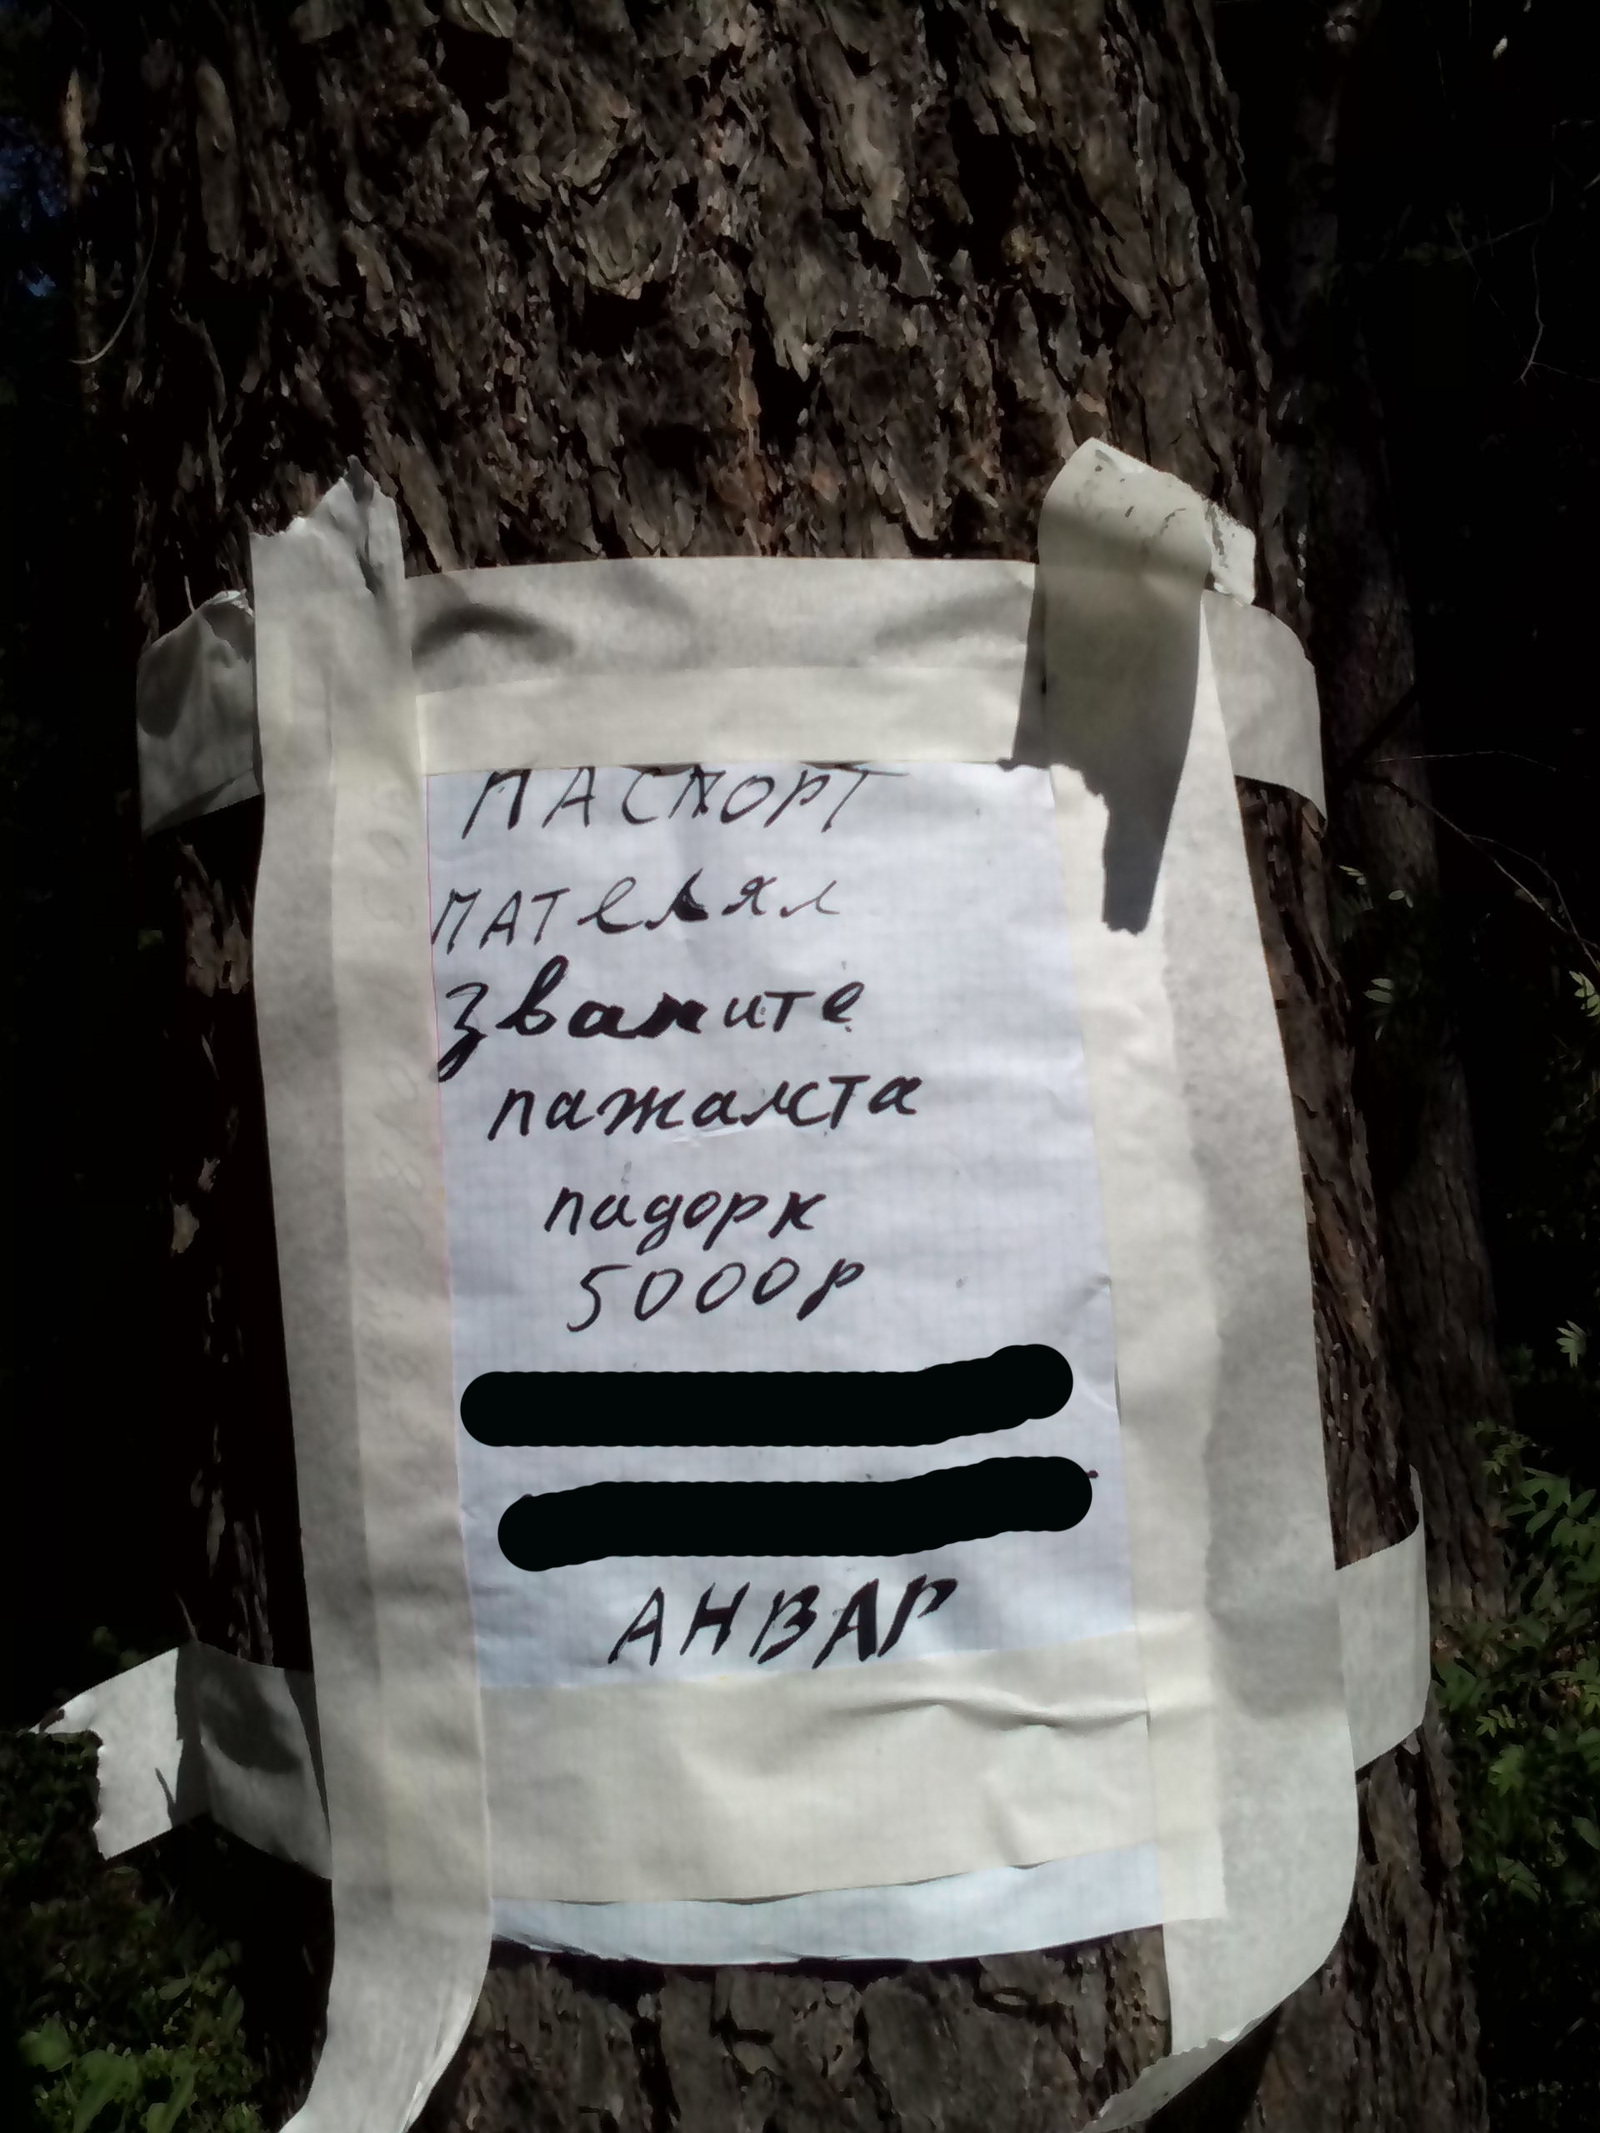 ПАСПОРТ
ПАТелял
званите
пажалста
падорк
5000р
АНВАР